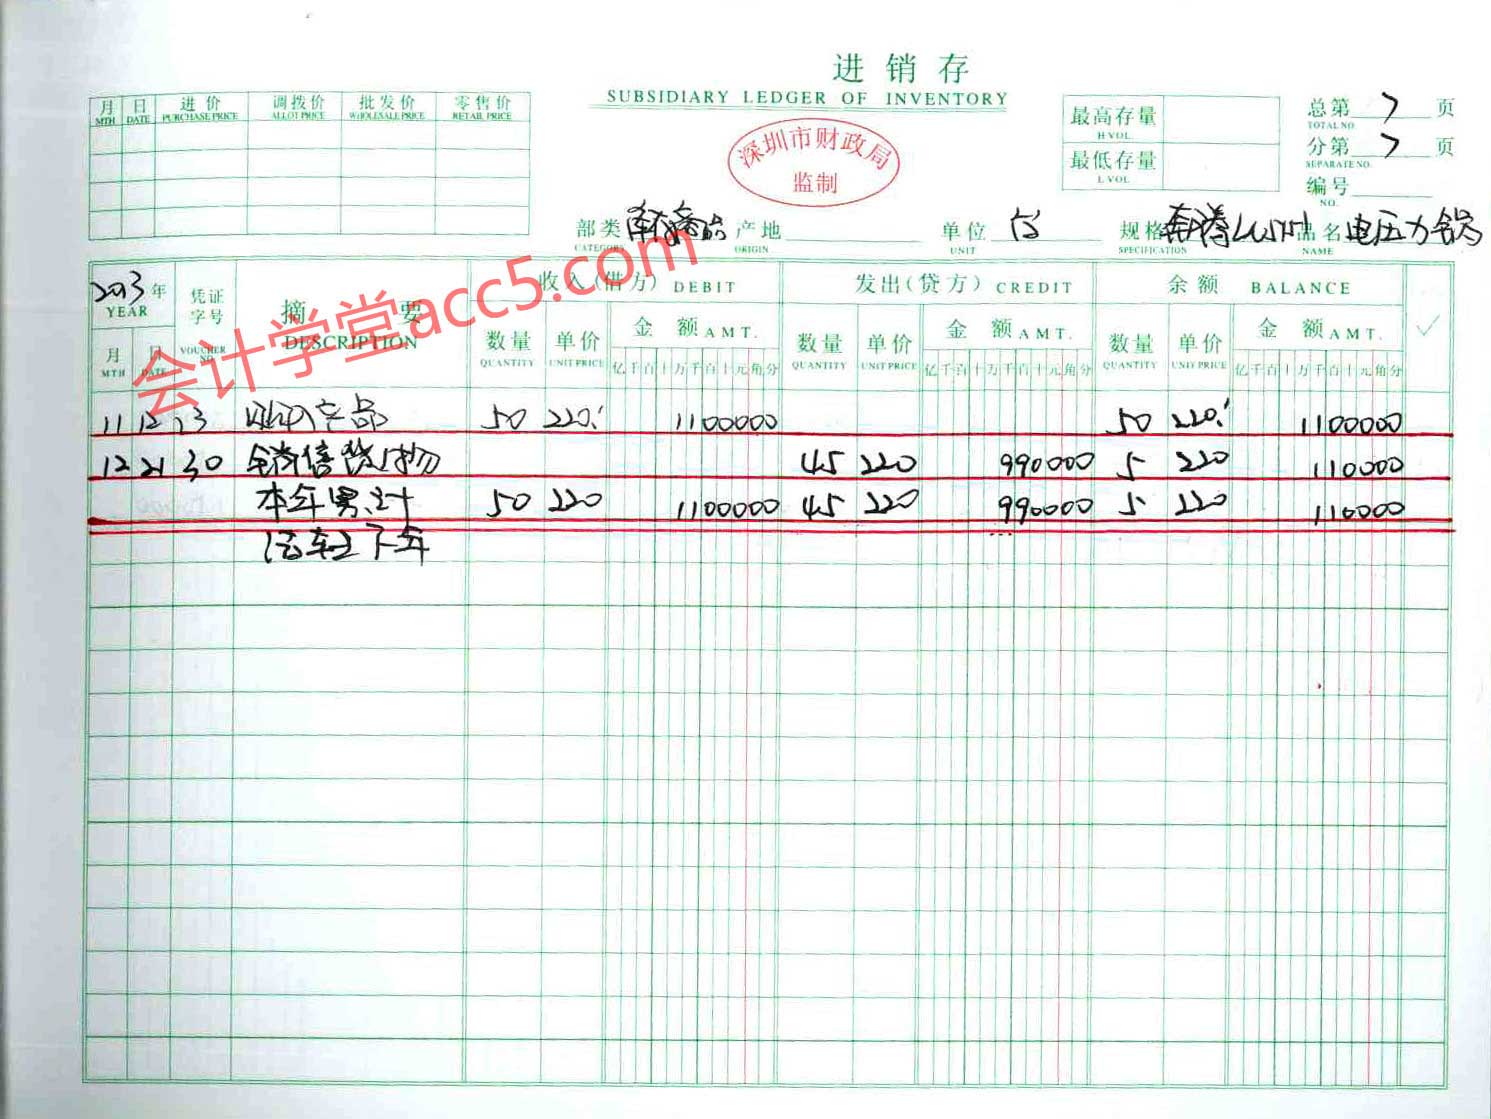 进销存
SUBSIDIARY LEDGER OF INVENTORY
月 MTH 日 DATE 进价 PURCHASE PRICE 调拨价 ALLOT PRICE 批发价 WHOLESALE PRICE 零售价 RETAIL PRICE
深圳市财政局
监制
最高存量
H.VOL
最低存量
L.VOL
总第 7 页
TOTAL NO.
分第 7 页
SEPARATE NO.
编号
NO.
部类 产地 单位 台 规格 奔腾 品名 电压力锅
CATEGORY ORIGIN UNIT SPECIFICATION NAME
2013年 凭证字号 摘要 收入(借方) DEBIT 发出(贷方) CREDIT 余额 BALANCE
YEAR VOUCHER NO. DESCRIPTION
月 日 数量 单价 金额 AMT. 数量 单价 金额 AMT. 数量 单价 金额 AMT. ✓
MTH DATE QUANTITY UNIT PRICE 亿千百十万千百十元角分 QUANTITY UNIT PRICE 亿千百十万千百十元角分 QUANTITY UNIT PRICE 亿千百十万千百十元角分
11 12 13 产品 50 220 1100000 50 220 1100000
12 21 30 销售货物 45 220 990000 5 220 110000
本年累计 50 220 1100000 45 220 990000 5 220 110000
结转下年
会计学堂acc5.com